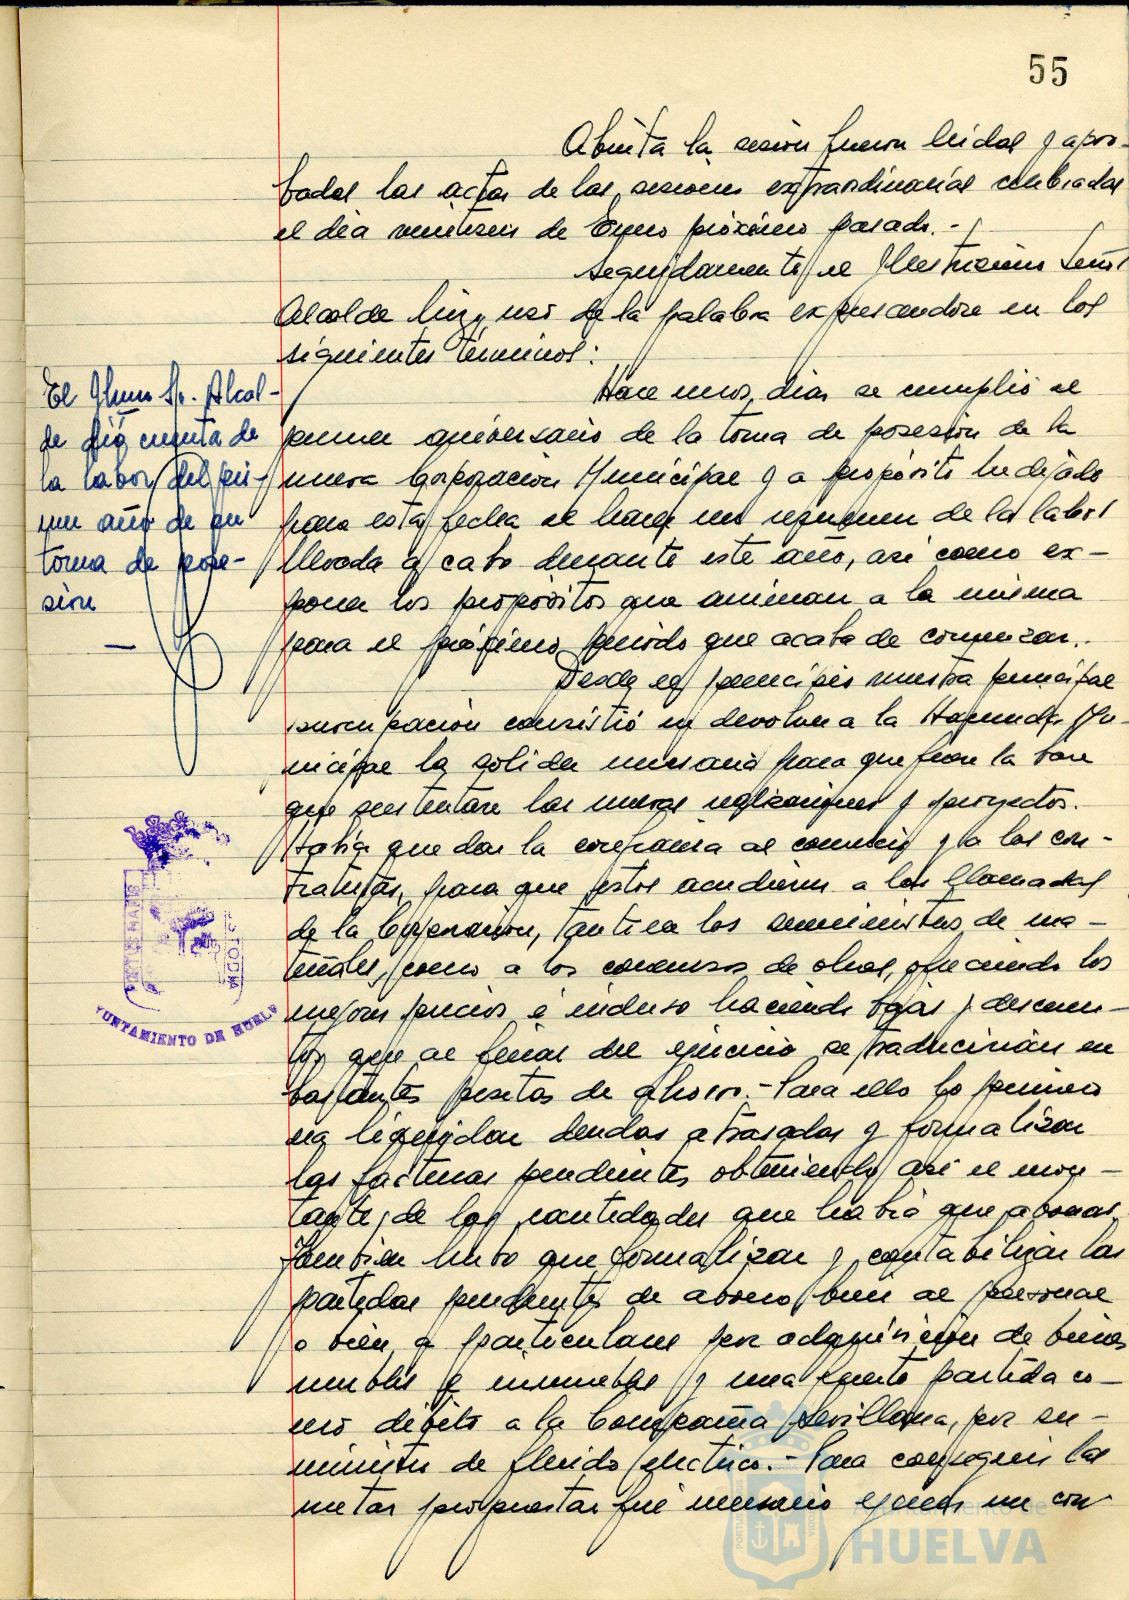 55
Abierta la sesión fueron leidas y apro-
badas las actas de las sesiones extraordinarias celebradas
el dia veintiseis de Enero próximo pasado.-
Seguidamente el Ilustrisimo Señor
Alcalde hizo uso de la palabra expresandose en los
siguientes términos:
Hace unos dias se cumplió el
primer aniversario de la toma de posesión de la
nueva Corporación Municipal y a propósito he dejado
para esta fecha el hacer un resumen de la labor
llevada a cabo durante este año, asi como ex-
poner los propósitos que animan a la misma
para el próximo periodo que acaba de comenzar.
Desde el principio nuestra principal
preocupación consistió en devolver a la Hacienda Mu-
nicipal la solidez necesaria para que fuera la base
que sustentara las nuevas realizaciones y proyectos.
Habia que dar la confianza al comercio y a los con-
tratistas, para que estos acudieran a las llamadas
de la Corporación, tanto a los suministros de ma-
teriales, como a los concursos de obras, ofreciendo los
mejores precios é incluso haciendo bajas y descuen-
tos que al final del ejercicio se traducirian en
bastantes pesetas de ahorro.- Para ello lo primero
era liquidar deudas atrasadas y formalizar
las facturas pendientes obteniendo asi el mon-
tante de las cantidades que habia que abonar.
Tambien hubo que formalizar y contabilizar las
partidas pendientes de abono bien al personal
o bien a particulares por adquisición de bienes
muebles e inmuebles y una fuerte partida co-
mo débito a la Compañia Sevillana, por su-
ministro de fluido eléctrico.- Para conseguir las
metas propuestas fué necesario ejercer un con-
El Ilmo Sr. Alcal-
de dió cuenta de
la labor del pri-
mer año de su
toma de pose-
sión
—
AYUNTAMIENTO DE HUELVA
Ayuntamiento de
HUELVA